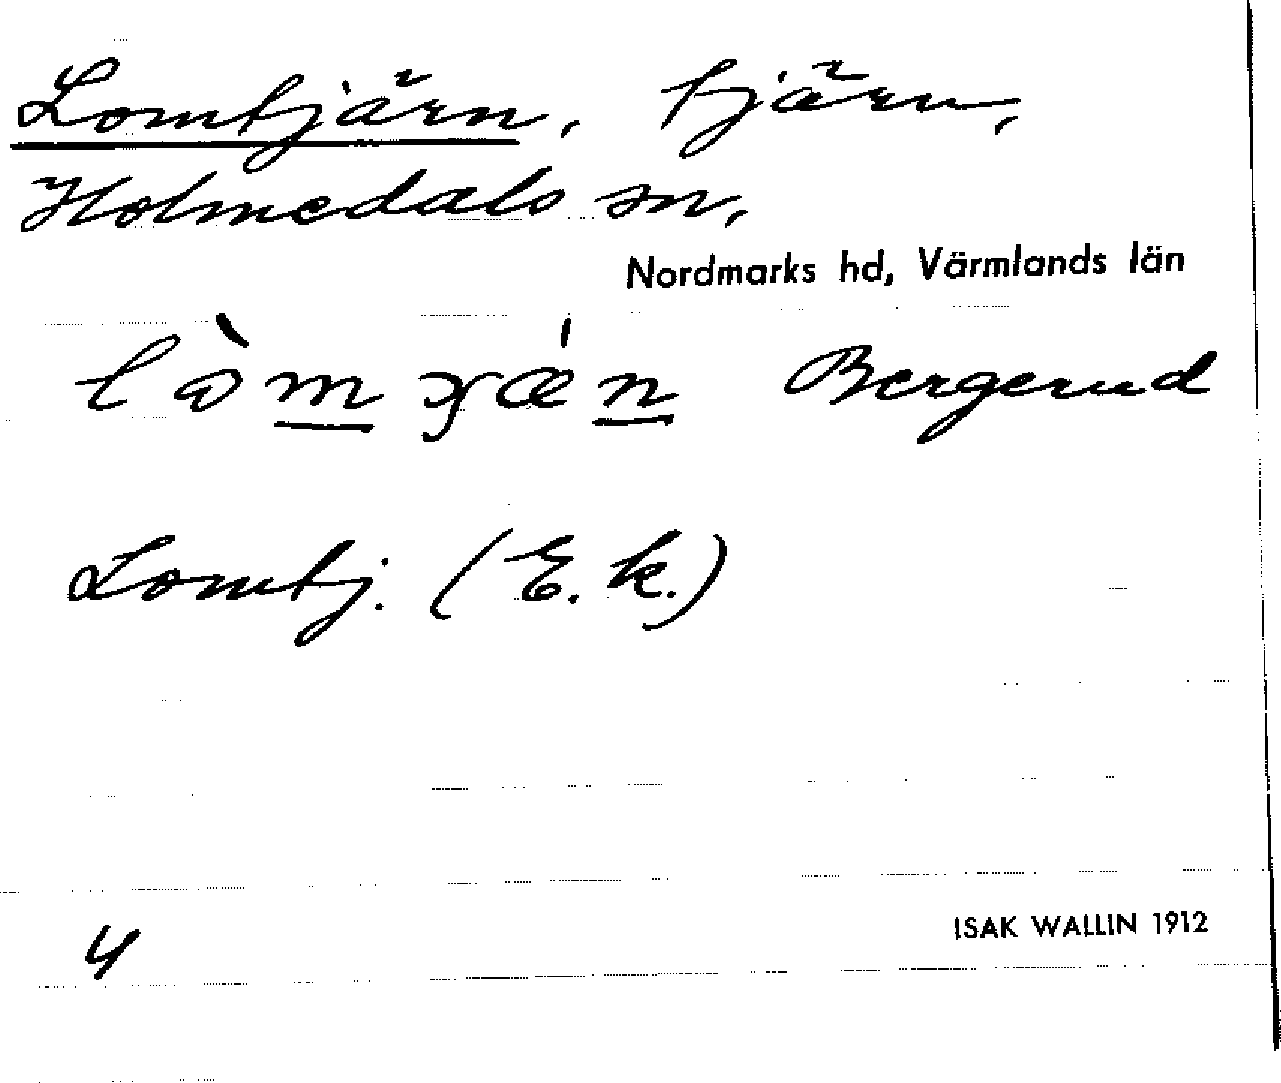 Lomtjärn, tjärn,
Holmedals sn,
Nordmarks hd, Värmlands län
Bergerud
Lomtj. (E. k.)
4
ISAK WALLIN 1912